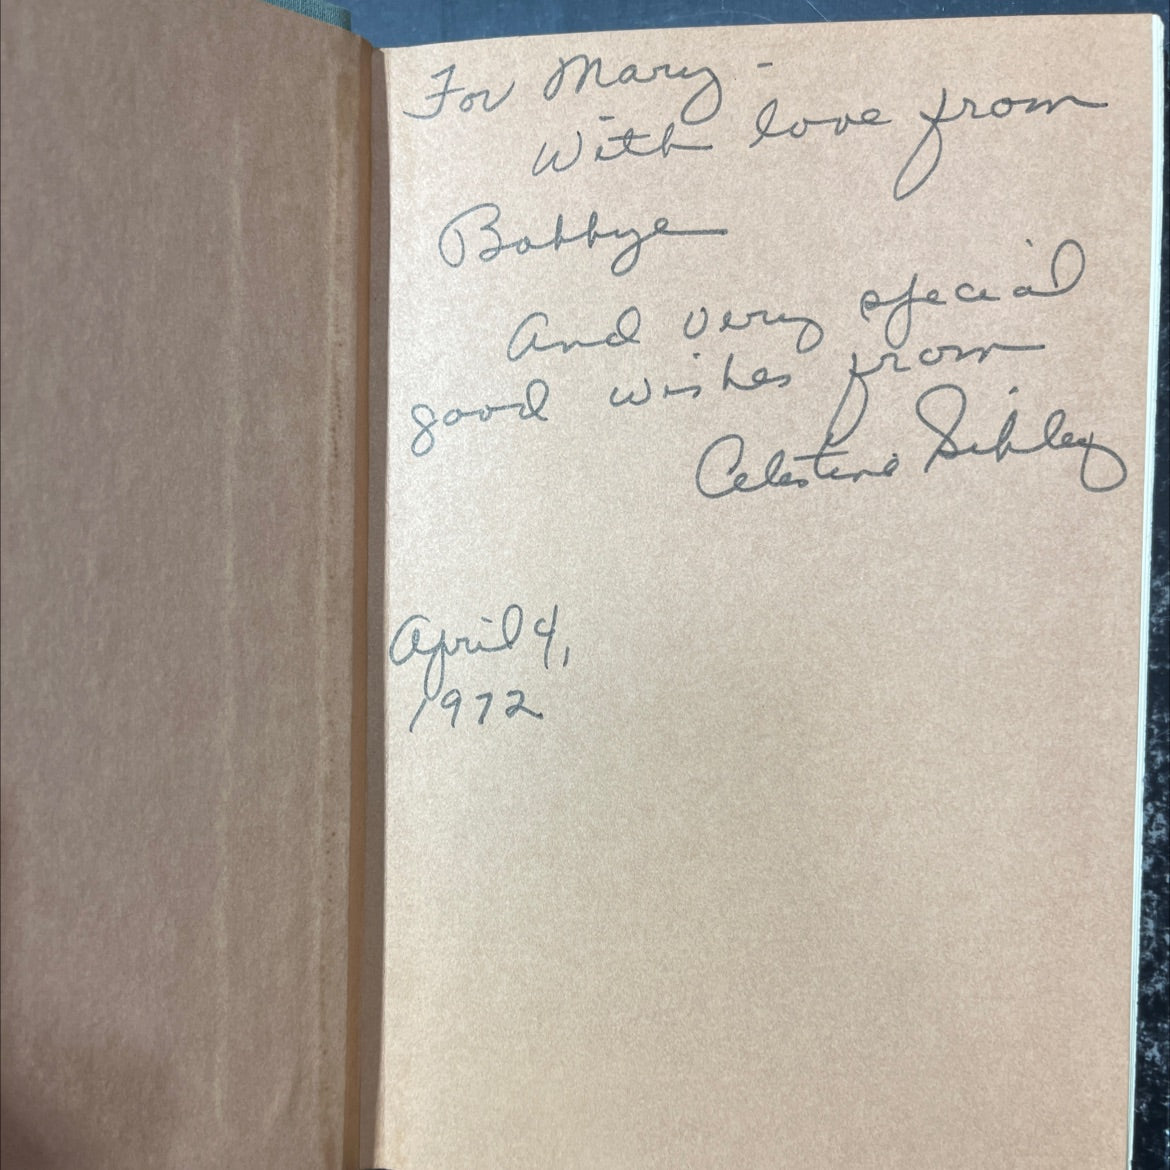 For Mary -
With love from
Bobbye
And very special
good wishes from
Celestine Sibley
April 4,
1972